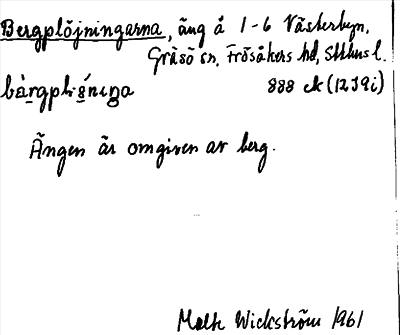 Bergplöjningarna, äng å 1-6 Västerbyn,
Gräsö sn, Frösåkers hd, Sthlms l.
888 ek (12 I 9 i)
Ängen är omgiven av berg.
Wickström 1961